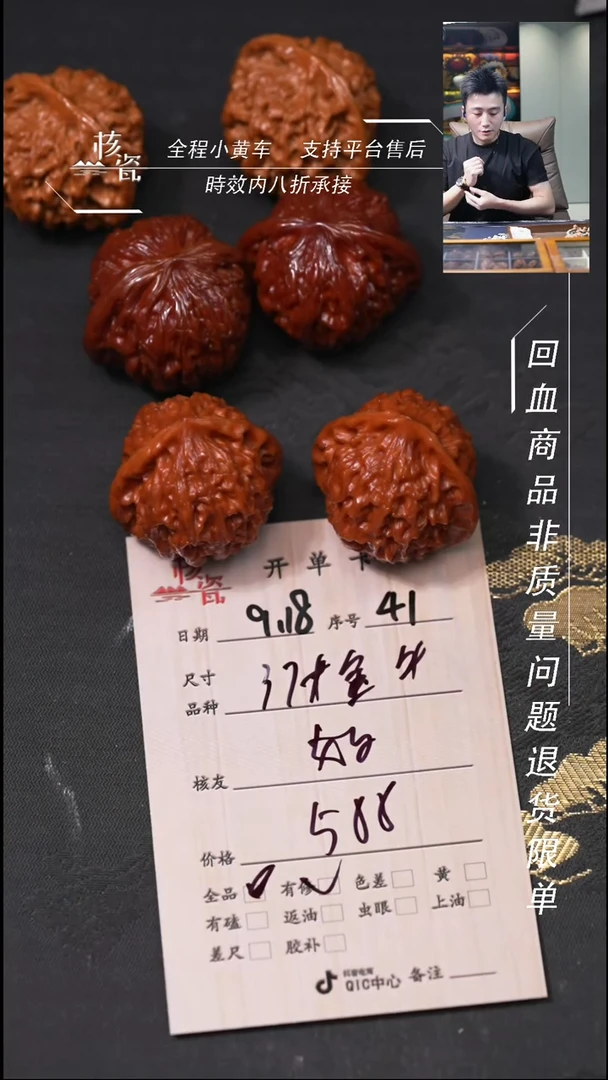 核瓷
全程小黄车 支持平台售后
時效内八折承接
回血商品非质量问题退货限单
核瓷
开单卡
日期 9.18 序号 41
尺寸
品种
核友
价格 588
全品 有修 色差 黄
有磕 返油 虫眼 上油
差尺 胶补
抖音电商
QIC中心 备注